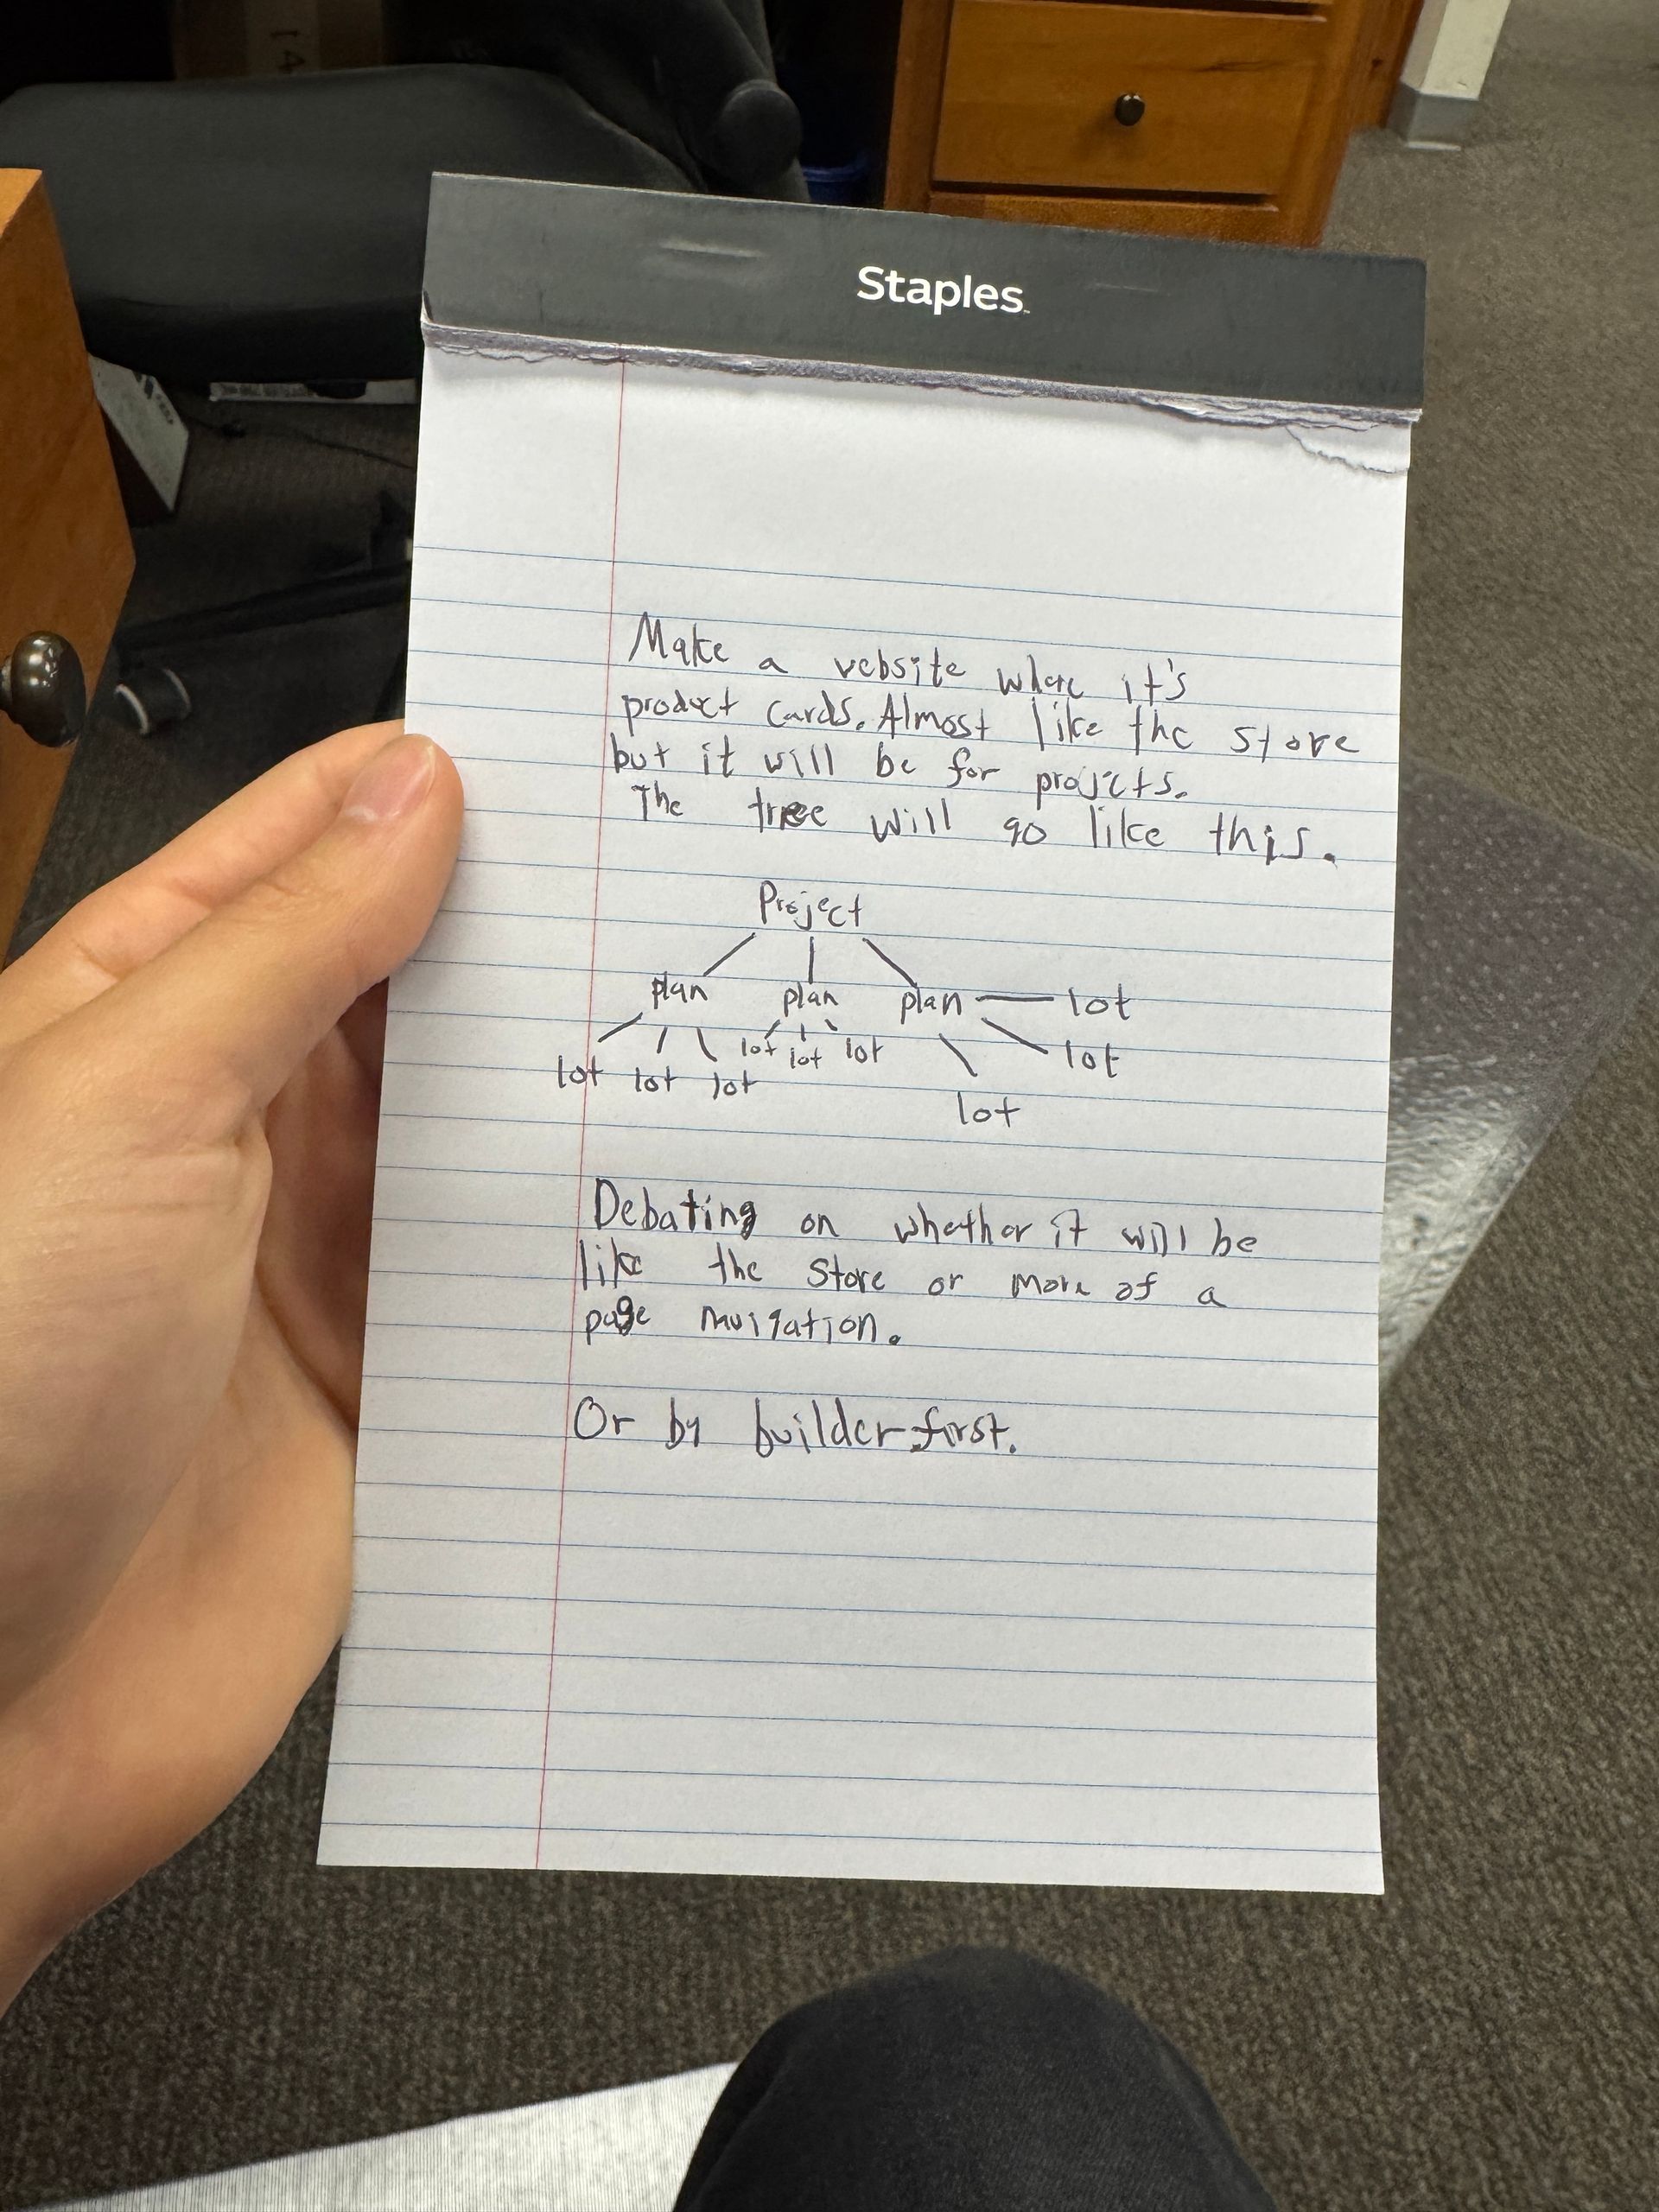 Staples
Make a website where it's
product cards. Almost like the store
but it will be for projcts.
The tree will go like this.
Project
plan plan plan lot
lot lot lot lot
lot lot lot
lot
Debating on whether it will be
like the store or more of a
page nuigation.
Or by builder first.